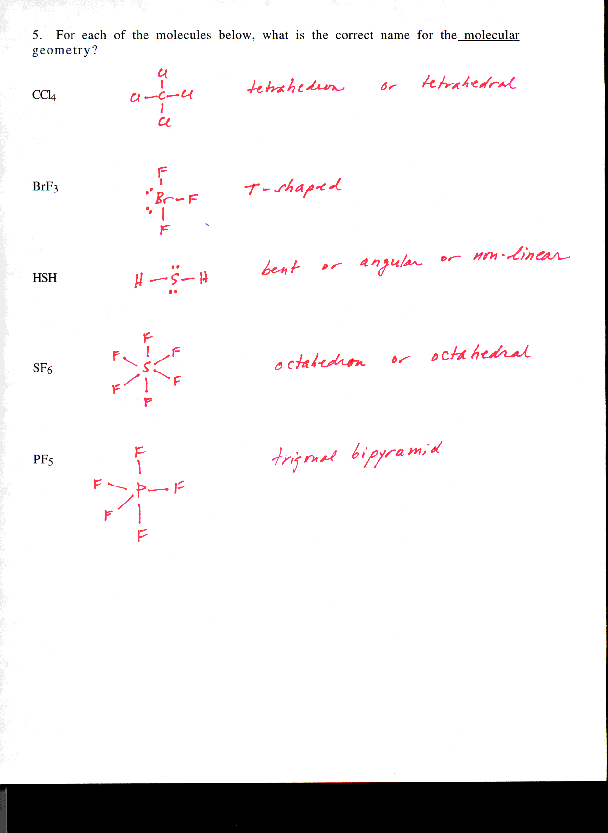 5. For each of the molecules below, what is the correct name for the molecular
geometry?
CCl4
Cl
Cl—C—Cl
Cl
tetrahedron or tetrahedral
BrF3
F
Br—F
F
T-shaped
HSH
H—S—H
bent or angular or non-linear
SF6
F
F F
S
F F
F
octahedron or octahedral
PF5
F
F P—F
F
F
trigonal bipyramid